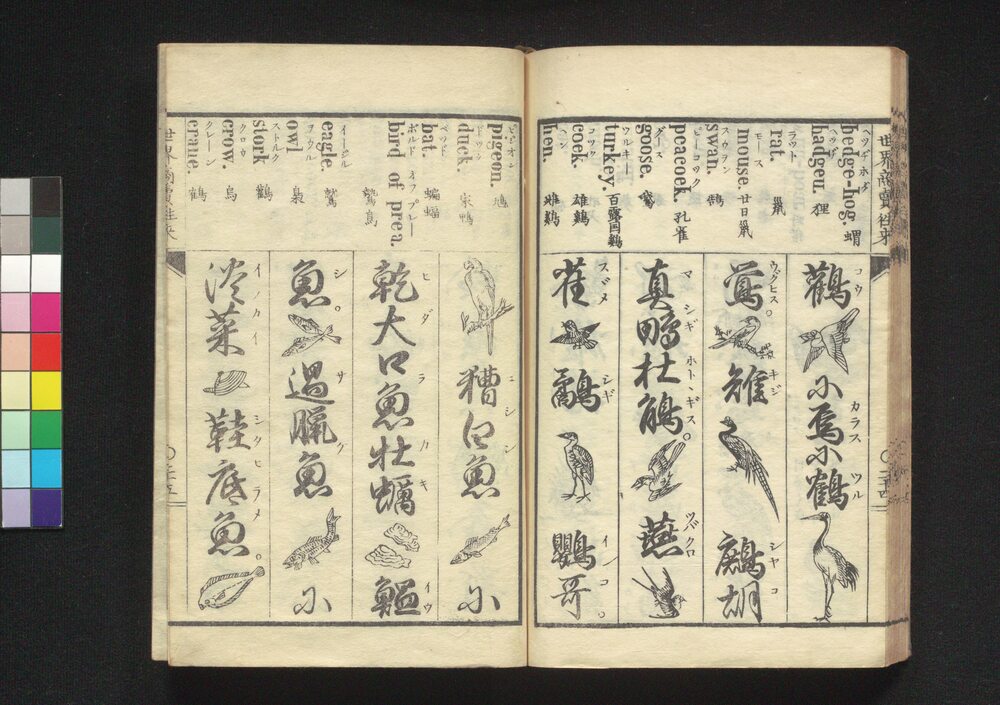 世界商賣徃来
ヘツヂホグ
hedge-hog. 蝟
ヘツヂ
hadgeu. 狸
ラット
rat. 鼠
モース
mouse. 廿日鼠
スウヲン
swan. 鵠
ピーコック
peacoek. 孔雀
グース
goose. 鵞
ツルキー
turkey. 百露国鷄
コック
cock. 雄鷄
ヘン
hen. 雌鷄
コウ カラス ツル
鸛 小烏小鶴
ウグヒス。 キジ シヤコ
鴬 雉 鷓胡
マシギ ホトヽギス。 ツバクロ
真鴫杜鵑 燕
スヾメ シギ イノコ。
雀 鷸 鸚哥
〇二十四
ピジオン
pigeon. 鳩
ドック
duck. 家鴨
ベット
bat. 蝙蝠
ボルド オフ プレー
bird of prea. 鷙鳥
イーグル
eagle. 鷲
ヲウル
owl 梟
ストルク
stork 鸛
クロウ
crow. 烏
クレーン
crane. 鶴
ニシン
糟白魚 小
ヒダラ カキ イウ
乾大口魚牡蠣 鰮
シ。 サケ
魚 過臘魚 小
イノカイ シタヒラメ。
淡菜 鞋底魚
世界商賣徃来
〇二十五